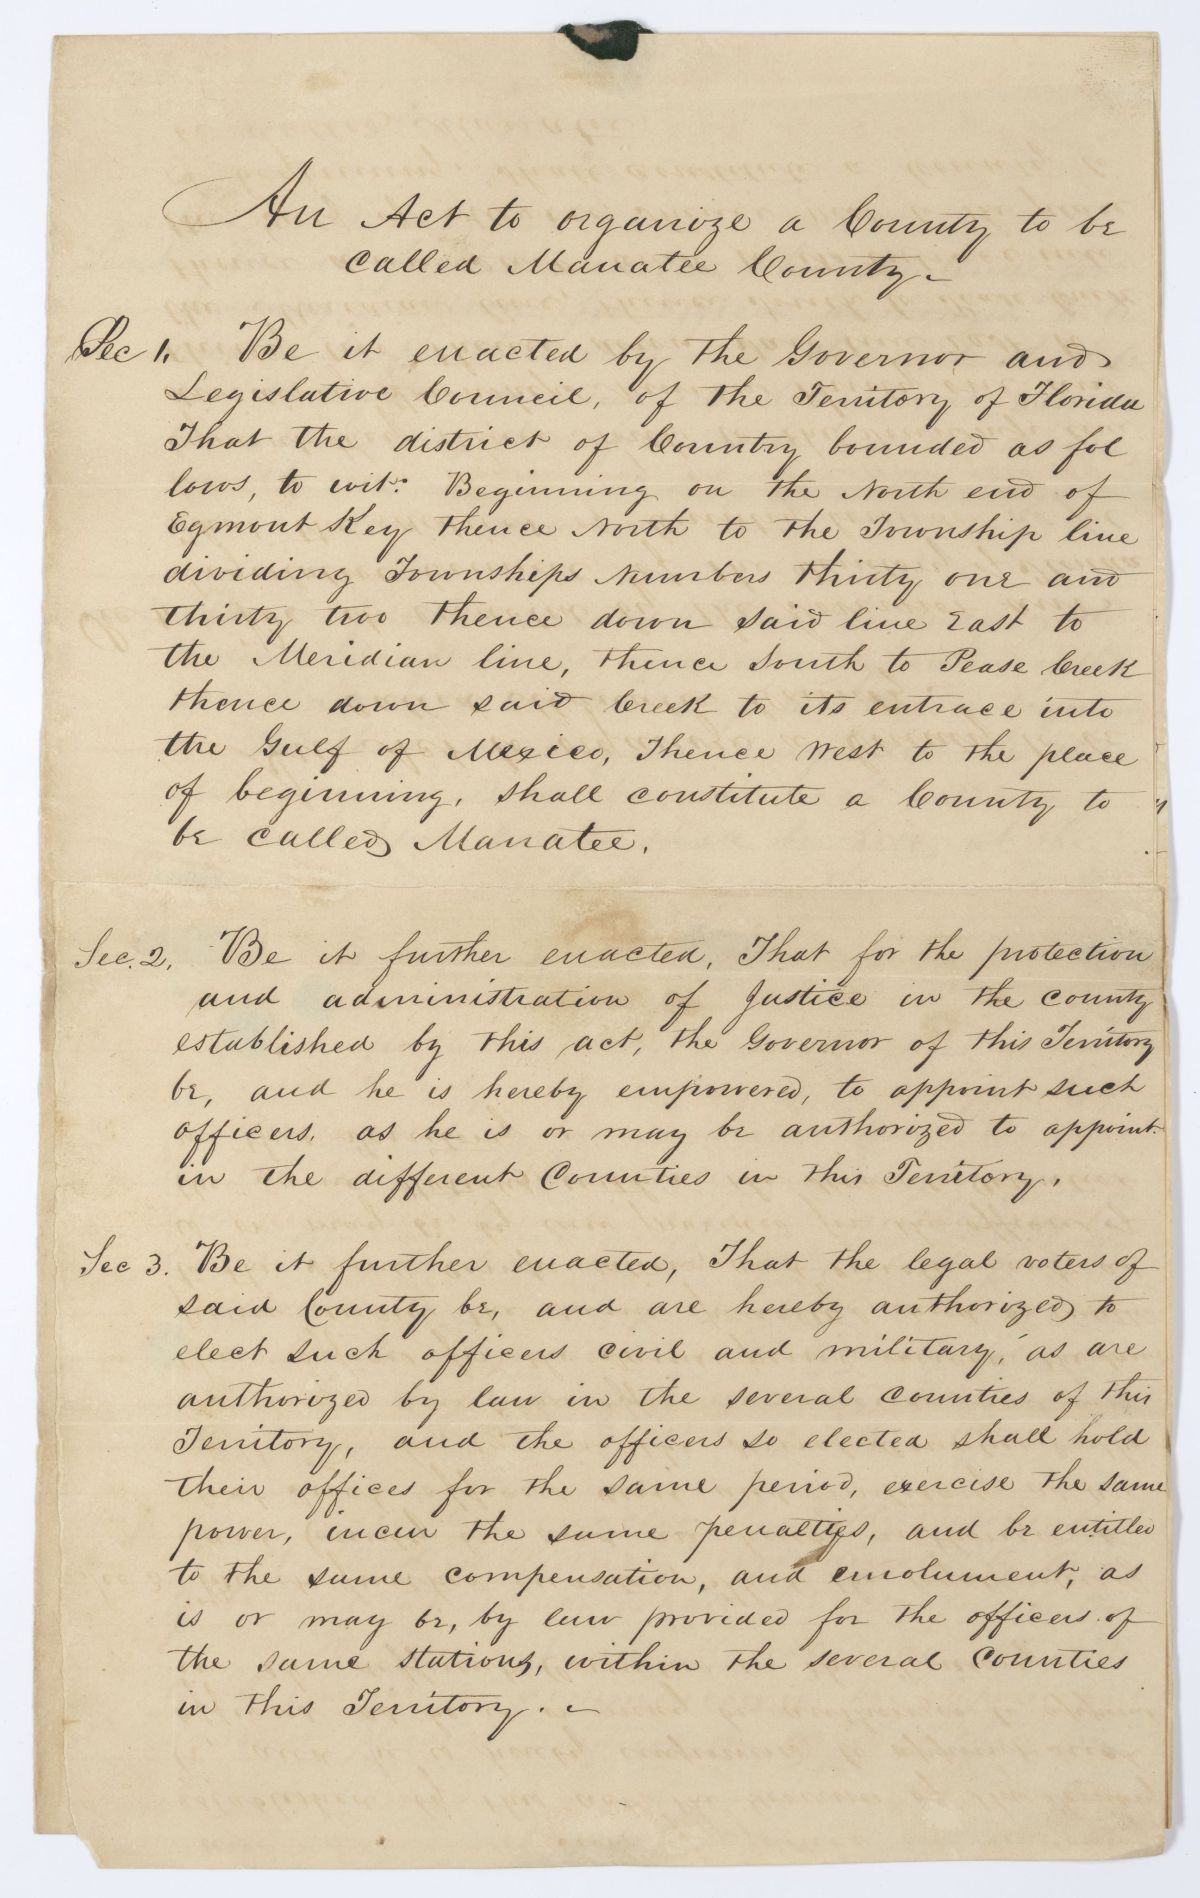 An Act to organize a County to be
called Manatee County.
Sec 1. Be it enacted by the Governor and
Legislative Council, of the Territory of Florida
That the district of Country bounded as fol
lows, to wit: Beginning on the North end of
Egmont Key thence North to the Township line
dividing Townships Numbers thirty one and
thirty two thence down said line East to
the Meridian line, thence South to Pease Creek
thence down said Creek to its entrace into
the Gulf of Mexico, Thence West to the place
of beginning, shall constitute a County to
be called Manatee.
Sec. 2. Be it further enacted, That for the protection
and administration of Justice in the county
established by this act, the Governor of this Territory
be, and he is hereby empowered, to appoint such
officers, as he is or may be authorized to appoint
in the different Counties in this Territory.
Sec 3. Be it further enacted, That the legal voters of
said County be, and are hereby authorized to
elect such officers civil and military, as are
authorized by law in the several counties of this
Territory, and the officers so elected shall hold
their offices for the same period, exercise the same
power, incur the same penalties, and be entitled
to the same compensation, and emolument, as
is or may be, by law provided for the officers of
the same stations, within the several Counties
in this Territory.